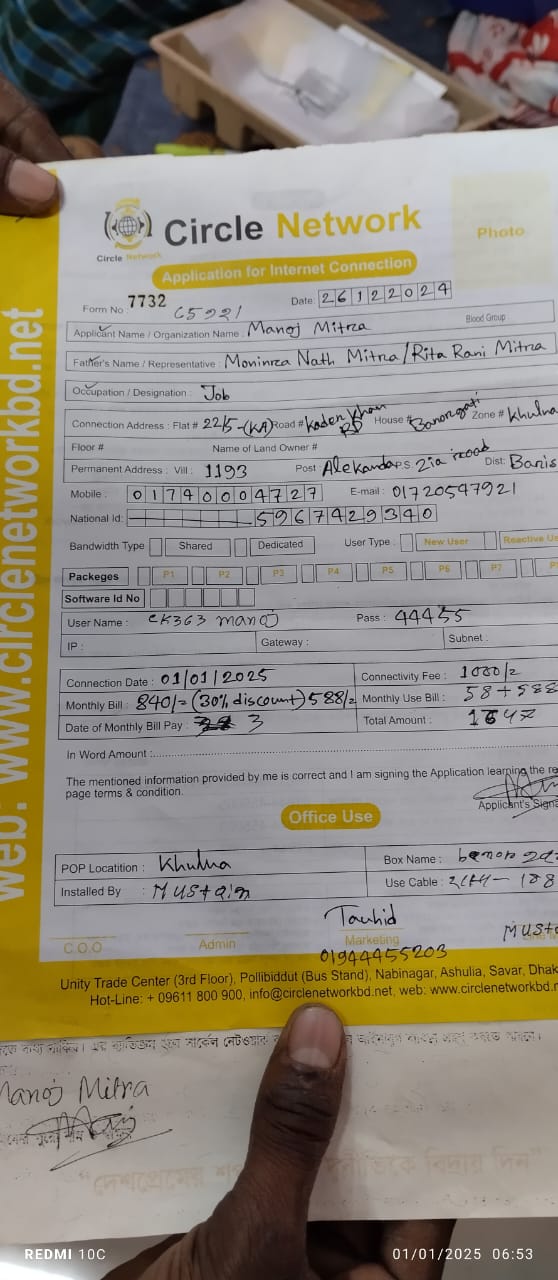 Circle Network
Circle Network
Photo
Application for Internet Connection
Form No 7732
Date: 26122024
Applicant Name / Organization Name : Manoj Mitra
Blood Group
Father's Name / Representative : Moninra Nath Mitra/Rita Rani Mitra
Occupation / Designation : Job
Connection Address : Flat # 22/5-(KA) Road # Kader Khan RD House # Zone # Khulna
Floor # Name of Land Owner #
Permanent Address : Vill : 1193 Post : P.S Zia road Dist: Baris
Mobile : 01740004727 E-mail : 01720547921
National Id: 5967429340
Bandwidth Type Shared Dedicated User Type : New User Reactive Us
Packeges P1 P2 P3 P4 P5 P6 P7 P
Software Id No
User Name : CK363 manoj Pass : 44455
IP : Gateway : Subnet :
Connection Date : 01/01/2025 Connectivity Fee : 1000/=
Monthly Bill : 840/= (30% discount) 588/= Monthly Use Bill : 58+588
Date of Monthly Bill Pay : 3 Total Amount : 1647
In Word Amount :
The mentioned information provided by me is correct and I am signing the Application learning the re
page terms & condition.
Applicant's Signa
Office Use
POP Locatition : Khulna Box Name :
Installed By : Mustain Use Cable :
Tauhid
C.O.O Admin Marketing
01944455203
Unity Trade Center (3rd Floor), Pollibiddut (Bus Stand), Nabinagar, Ashulia, Savar, Dhak
Hot-Line: + 09611 800 900, info@circlenetworkbd.net, web: www.circlenetworkbd.n
web: www.circlenetworkbd.net
Manoj Mitra
REDMI 10C
01/01/2025 06:53